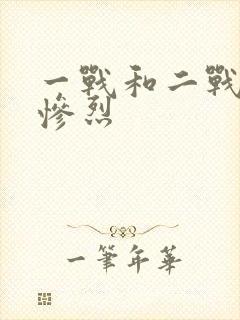 一戰和二戰
慘烈
一筆年華